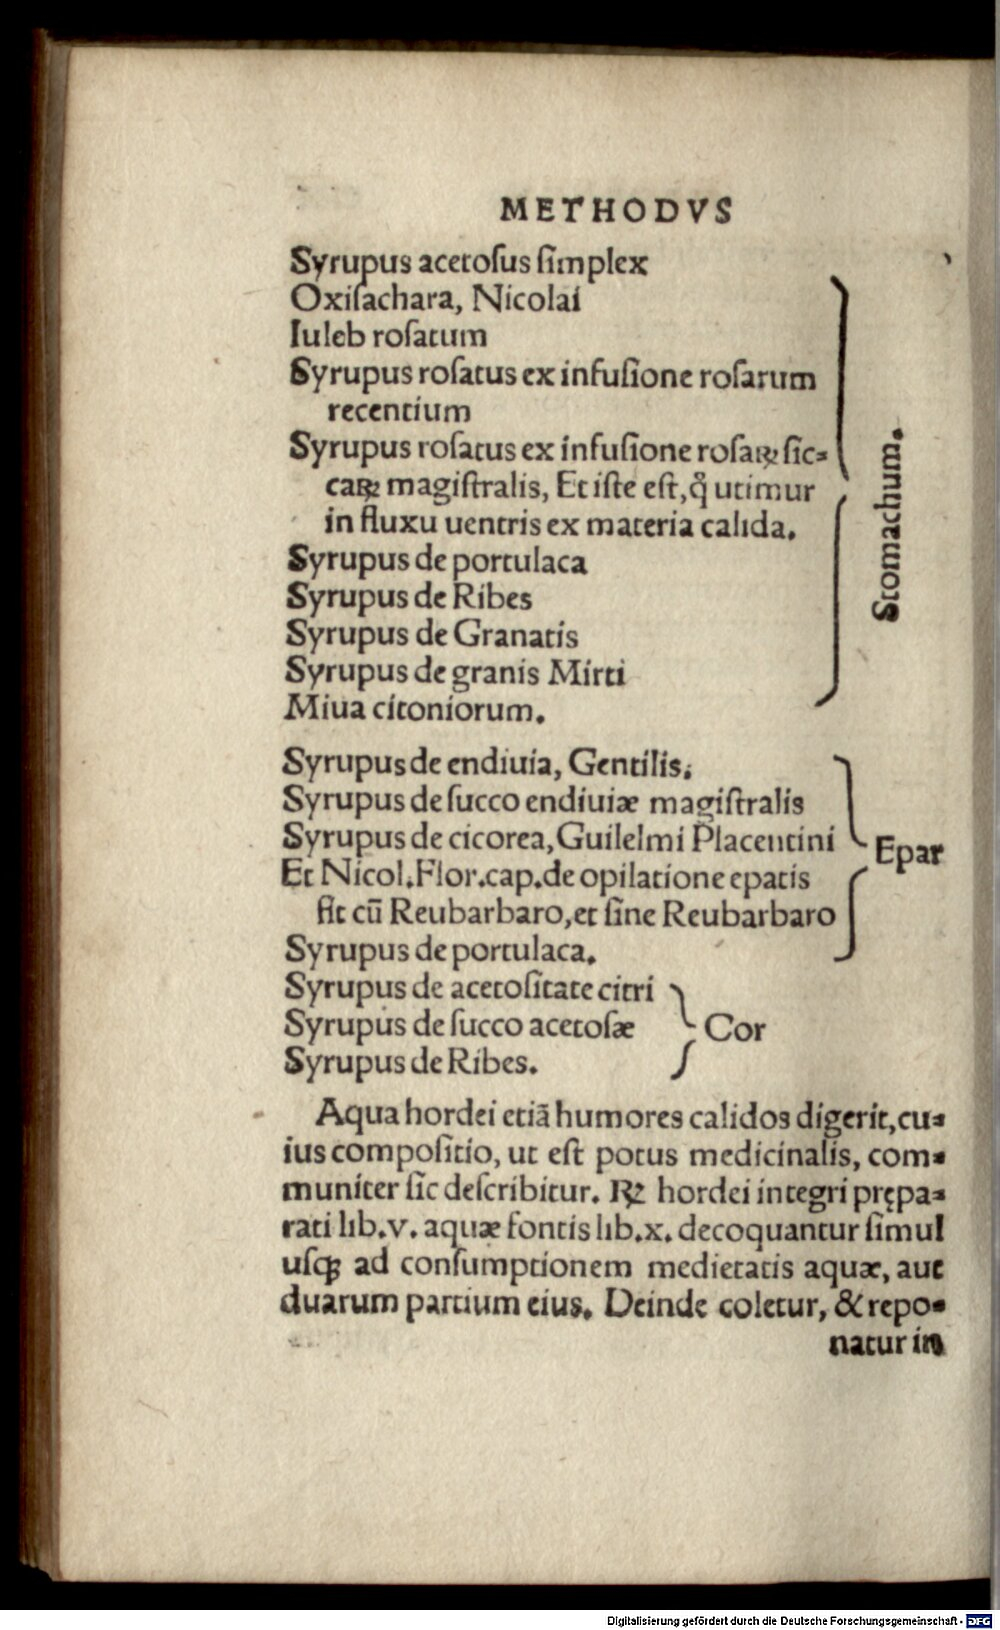 METHODVS
Syrupus acetosus simplex
Oxisachara, Nicolai
Iuleb rosatum
Syrupus rosatus ex infusione rosarum
recentium
Syrupus rosatus ex infusione rosaꝝ sic⸗
caꝝ magistralis, Et iste est, q̊ utimur
in fluxu uentris ex materia calida.
Syrupus de portulaca
Syrupus de Ribes
Syrupus de Granatis
Syrupus de granis Mirti
Miua citoniorum.
Stomachum.
Syrupus de endiuia, Gentilis.
Syrupus de succo endiuiæ magistralis
Syrupus de cicorea, Guilelmi Placentini
Et Nicol. Flor. cap. de opilatione epatis
fit cū Reubarbaro, et sine Reubarbaro
Syrupus de portulaca.
Epar
Syrupus de acetositate citri
Syrupus de succo acetosæ
Syrupus de Ribes.
Cor
Aqua hordei etiā humores calidos digerit, cu⸗
ius compositio, ut est potus medicinalis, com⸗
muniter sic describitur. ℞ hordei integri prępa⸗
rati lib. v. aquæ fontis lib. x. decoquantur simul
usqꝫ ad consumptionem medietatis aquæ, aut
duarum partium eius. Deinde coletur, & repo⸗
natur in
Digitalisierung gefördert durch die Deutsche Forschungsgemeinschaft - DFG